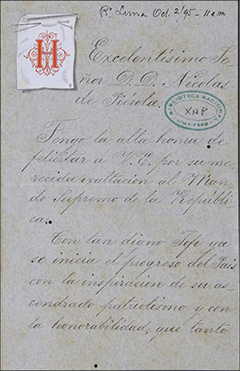 Rª Lima Oct. 2/95 - 11 a m
H
Excelentísimo Se-
ñor D. D. Nicolas
de Piérola.
BIBLIOTECA NACIONAL
XNP
Tengo la alta honra de
felicitar a V. E. por su me-
recida exaltacion al Man-
do Supremo de la Repúbli-
ca.
Con tan digno Jefe ya
se inicia el progreso del País
con la inspiracion de su as-
cendrado patriotismo y con
la honorabilidad, que tanto